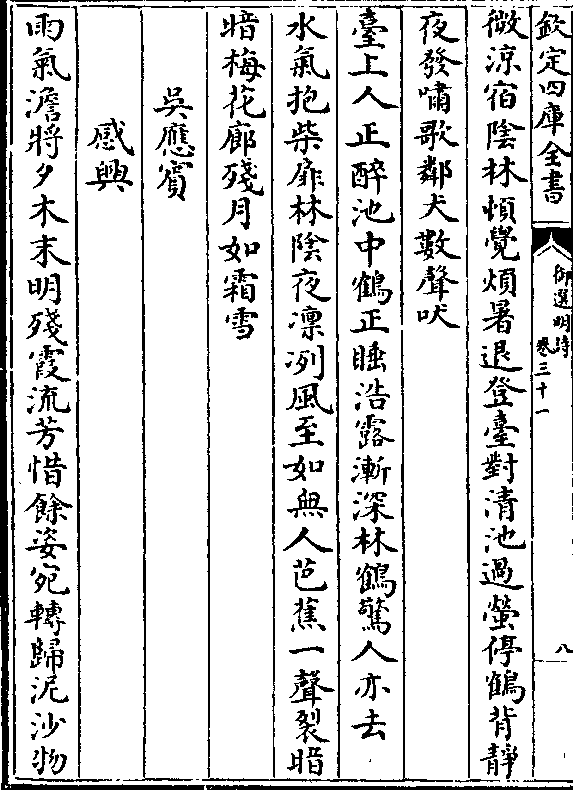 欽定四庫全書
御選明詩
卷三十一
八
微涼宿陰林頓覺煩暑退登臺對清池過螢停鶴背靜
夜發嘯歌鄰犬數聲吠
臺上人正醉池中鶴正睡浩露漸深林鶴驚人亦去
水氣抱柴扉林陰夜凛冽風至如無人芭蕉一聲裂暗
暗梅花廊殘月如霜雪
吳應賓
感興
雨氣澹將夕木末明殘霞流芳惜餘姿宛轉歸泥沙物